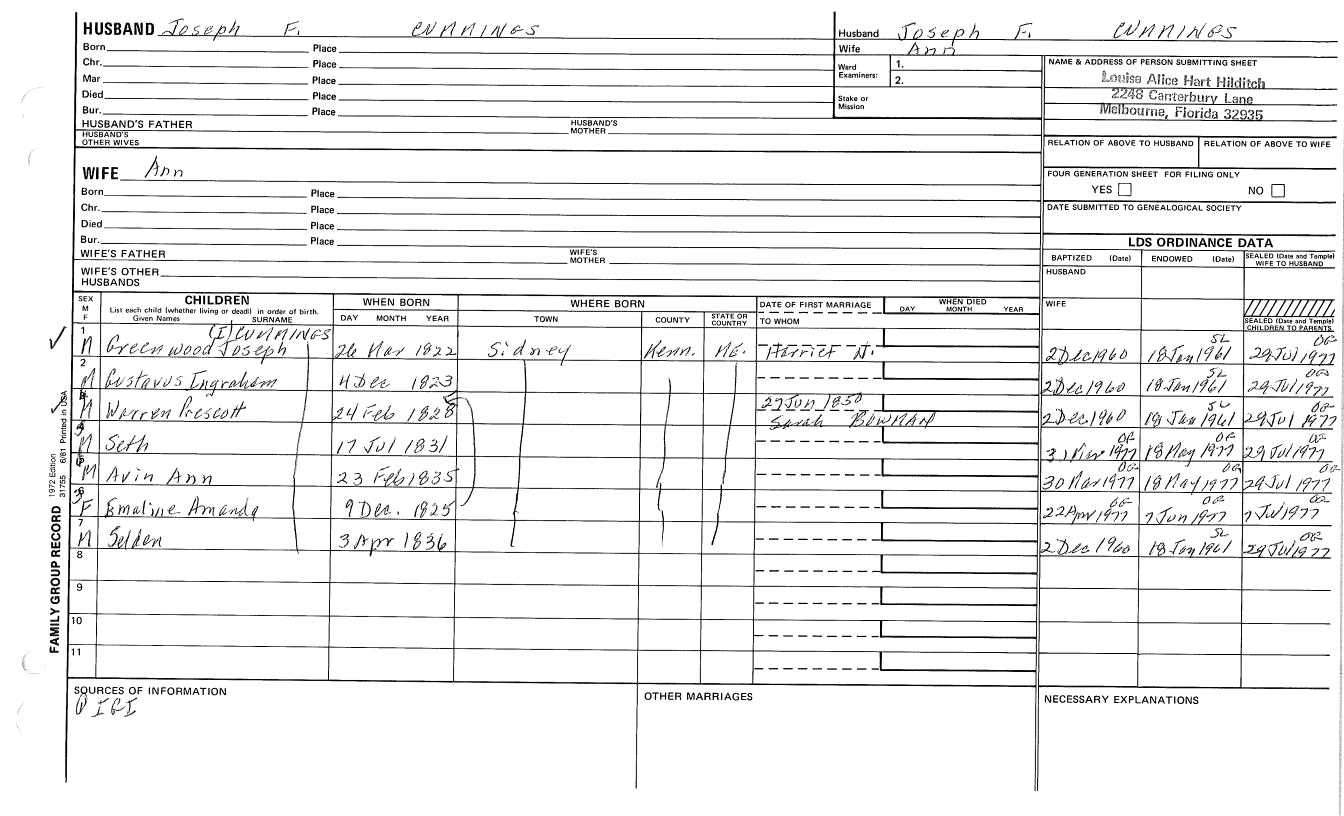 HUSBAND Joseph F. CUMMINGS
Husband Joseph F. CUMMINGS
Wife Ann
Born Place
Chr. Place
Mar Place
Died Place
Bur. Place
Ward Examiners: 1.
2.
Stake or Mission
HUSBAND'S FATHER HUSBAND'S MOTHER
HUSBAND'S OTHER WIVES
NAME & ADDRESS OF PERSON SUBMITTING SHEET
Louisa Alice Hart Hilditch
2248 Canterbury Lane
Melbourne, Florida 32935
RELATION OF ABOVE TO HUSBAND RELATION OF ABOVE TO WIFE
FOUR GENERATION SHEET FOR FILING ONLY
YES NO
DATE SUBMITTED TO GENEALOGICAL SOCIETY
WIFE Ann
Born Place
Chr. Place
Died Place
Bur. Place
WIFE'S FATHER WIFE'S MOTHER
WIFE'S OTHER HUSBANDS
LDS ORDINANCE DATA
BAPTIZED (Date) ENDOWED (Date) SEALED (Date and Temple) WIFE TO HUSBAND
HUSBAND
WIFE
SEALED (Date and Temple) CHILDREN TO PARENTS
SEX M F
CHILDREN
List each child (whether living or dead) in order of birth.
Given Names SURNAME
WHEN BORN
DAY MONTH YEAR
WHERE BORN
TOWN COUNTY STATE OR COUNTRY
DATE OF FIRST MARRIAGE
TO WHOM
WHEN DIED
DAY MONTH YEAR
1 M Greenwood Joseph (I) CUMMINGS 26 Mar 1822 Sidney Kenn. ME. Harriet N. 2 Dec 1960 18 Jan 1961 SL 29 Jul 1977 OG
2 M Gustavus Ingraham 4 Dec 1823 2 Dec 1960 18 Jan 1961 SL 29 Jul 1977 OG
4 M Warren Prescott 24 Feb 1828 27 Jun 1850 Sarah BOWMAN 2 Dec 1960 18 Jan 1961 SL 29 Jul 1977 OG
5 M Seth 17 Jul 1831 31 Mar 1977 OG 18 May 1977 OG 29 Jul 1977 OG
6 M Avin Ann 23 Feb 1835 30 Mar 1977 OG 18 May 1977 OG 29 Jul 1977 OG
3 F Emaline Amanda 9 Dec. 1825 22 Apr 1977 OG 7 Jun 1977 OG 7 Jul 1977 OG
7 M Selden 3 Apr 1836 2 Dec 1960 18 Jan 1961 SL 29 Jul 1977 OG
8
9
10
11
SOURCES OF INFORMATION
IGI
OTHER MARRIAGES
NECESSARY EXPLANATIONS
FAMILY GROUP RECORD
1972 Edition
31755 6/81 Printed in USA